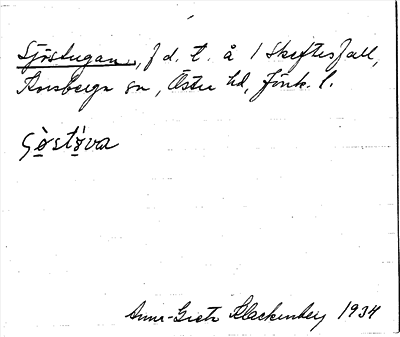 Sjöstugan, f d. t. å 1 Skeftesfall,
Ansbergs sn, Östra hd, Jönk. l.
sjø̀stǿva
Anna-Greta Blackenberg 1934